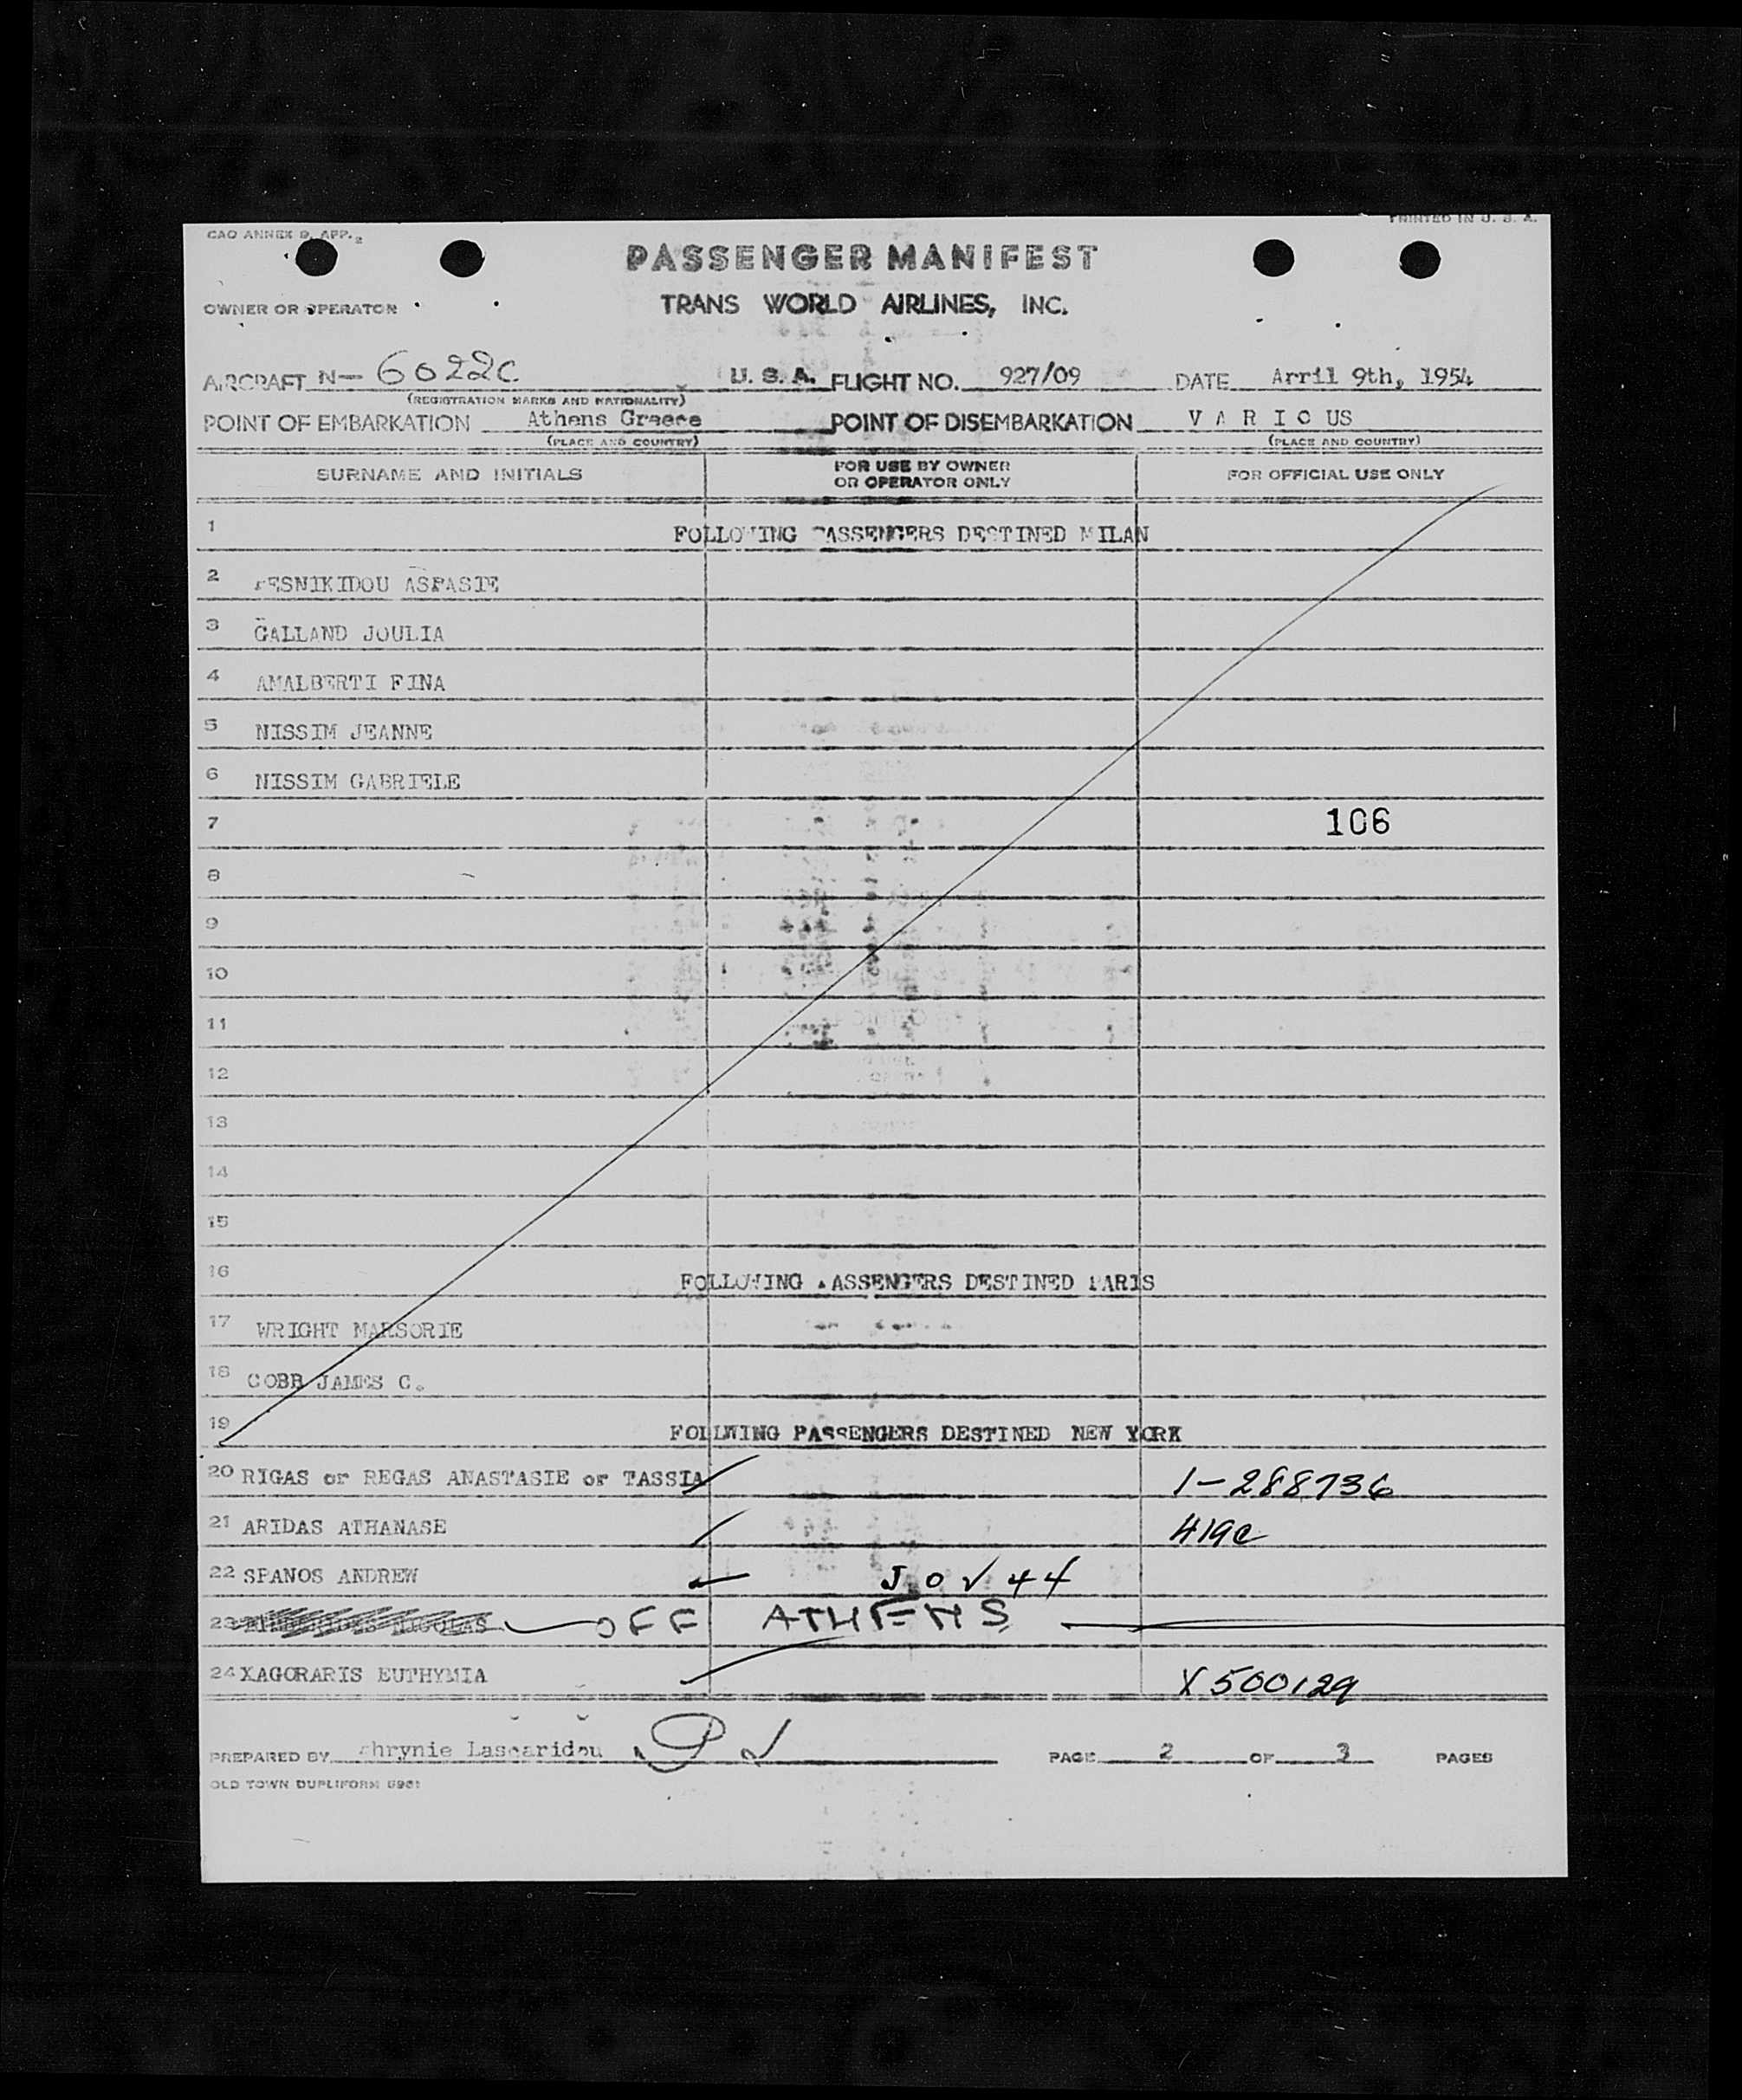 PRINTED IN U. S. A.
CAO ANNEX 9, APP. 2
PASSENGER MANIFEST
OWNER OR OPERATOR TRANS WORLD AIRLINES, INC.
AIRCRAFT N- 6022C U. S. A. FLIGHT NO. 927/09 DATE Arril 9th, 1954
(REGISTRATION MARKS AND NATIONALITY)
POINT OF EMBARKATION Athens Greece POINT OF DISEMBARKATION V A R I O US
(PLACE AND COUNTRY) (PLACE AND COUNTRY)
SURNAME AND INITIALS FOR USE BY OWNER OR OPERATOR ONLY FOR OFFICIAL USE ONLY
1 FOLLOWING PASSENGERS DESTINED MILAN
2 ASPASIE
3 GALLAND JOULIA
4 AMALBERTI FINA
5 NISSIM JEANNE
6 NISSIM GABRIELE
7 106
8
9
10
11
12
13
14
15
16 FOLLOWING PASSENGERS DESTINED PARIS
17 WRIGHT MARSORIE
18 COBB JAMES C.
19 FOLLWING PASSENGERS DESTINED NEW YORK
20 RIGAS or REGAS ANASTASIE or TASSIA 1-288736
21 ARIDAS ATHANASE 419c
22 SPANOS ANDREW J O V 44
23 OFF ATHENS
24 XAGORARIS EUTHYMIA X500129
PREPARED BY Lascaridou PAGE 2 OF 3 PAGES
OLD TOWN DUPLIFORM